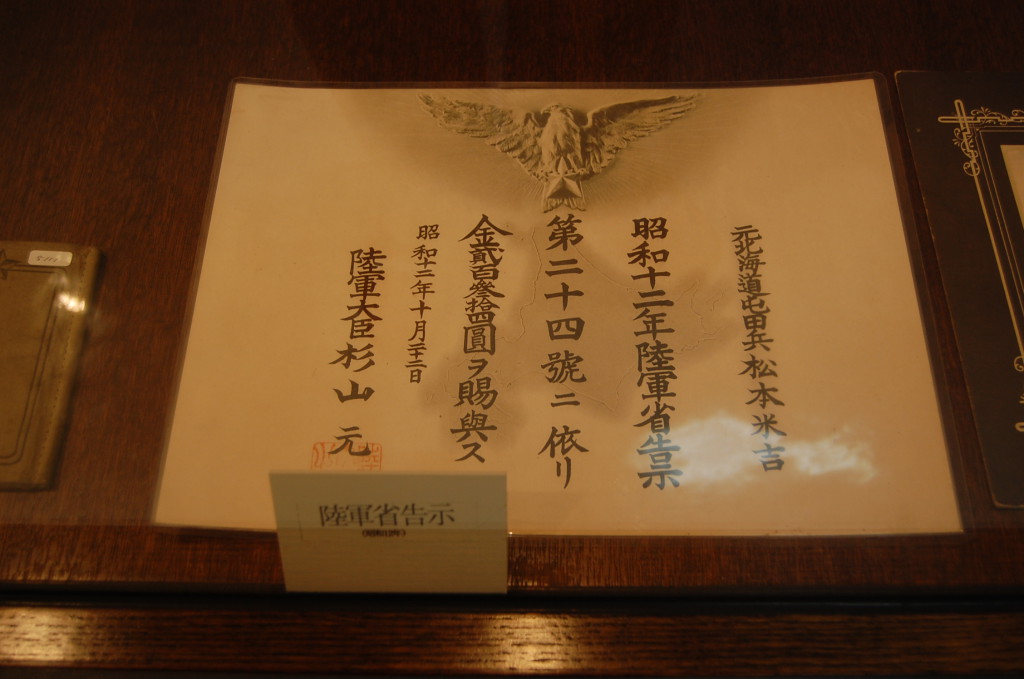 元北海道屯田兵松本米吉
昭和十二年陸軍省告示
第二十四號ニ依リ
金貳百參拾四圓ヲ賜與ス
昭和十二年十月二十二日
陸軍大臣杉山元
陸軍省告示